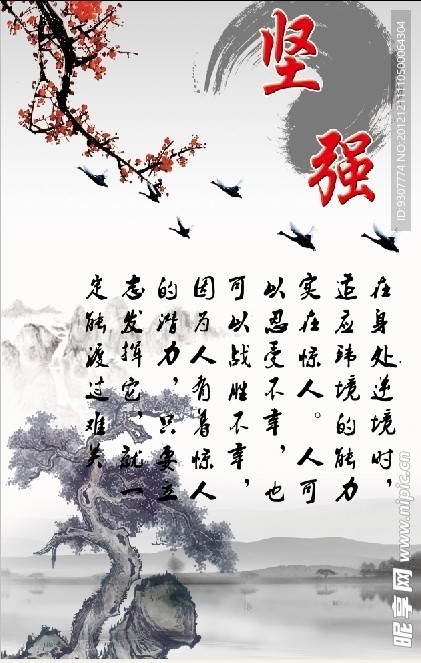 坚
强
在身处逆境时，
适应环境的能力
实在惊人。人可
以忍受不幸，也
可以战胜不幸，
因为人有着惊人
的潜力，只要立
志发挥它，就一
定能渡过难关
ID:9307774 NO:20121211110500064304
昵享网 www.nipic.cn